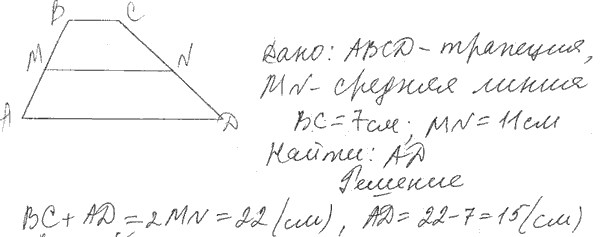 B C
M N
A D
Дано: ABCD - трапеция,
MN - средняя линия
BC = 7 см; MN = 11 см
Найти: AD
Решение
BC + AD = 2MN = 22 (см), AD = 22 - 7 = 15 (см)